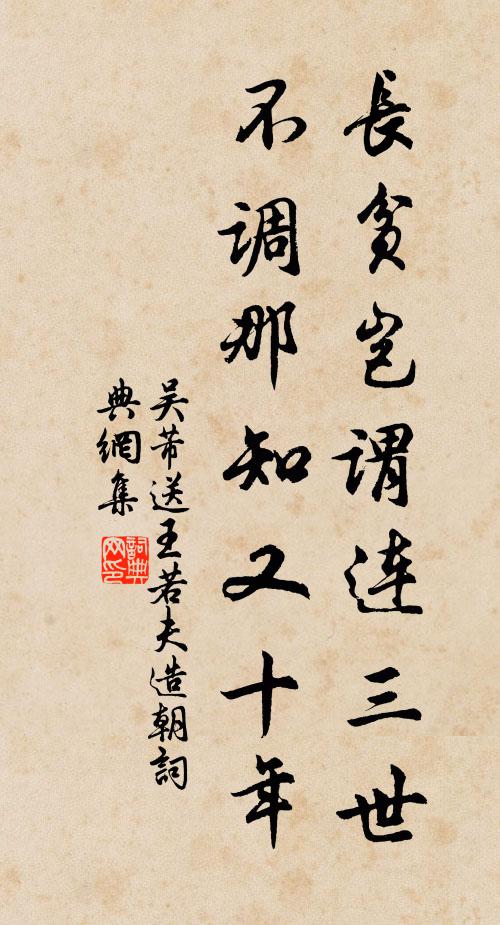 長貧豈謂連三世
不調那知又十年
吴芾送王若夫造朝詞
典網集
詞典
网印